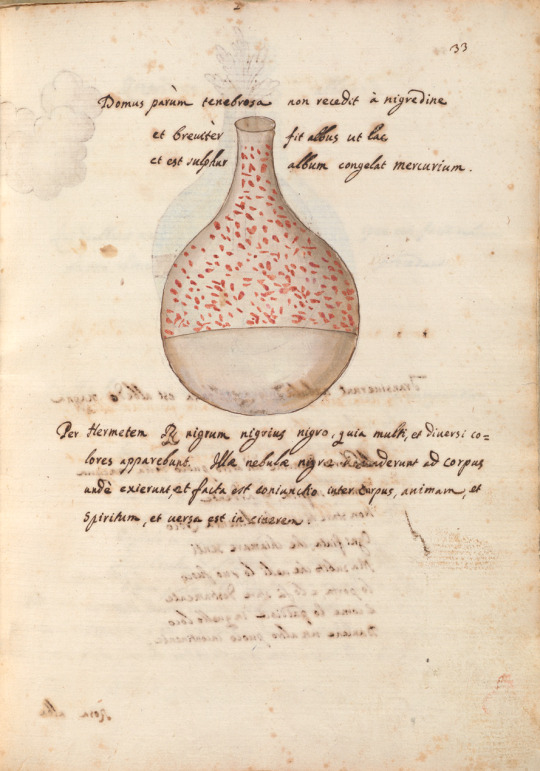 33
Domus parùm tenebrosa non recedit à nigredine
et breuitèr fit albus ut lac
et est sulphur album congelat mercurium.
Per Hermetem ℞ nigrum nigrius nigro, quia multi, et diuersi co=
lores apparebunt. Illæ nebulæ nigræ descenderunt ad corpus
undè exierunt, et facta est coniunctio inter corpus, animam, et
Spiritum, et uersa est in cinerem.